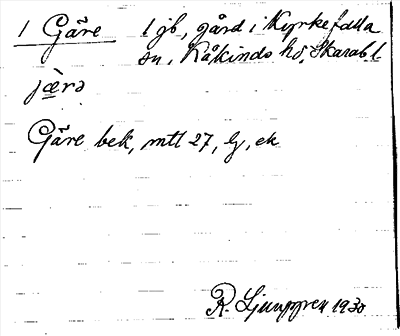 1 Gäre 1 jb, gård i Kyrkefalla
sn, Kåkinds hd, Skarab. l.
jæ̀rə
Gäre bek, mtl 27, ek
R. Ljunggren 1930